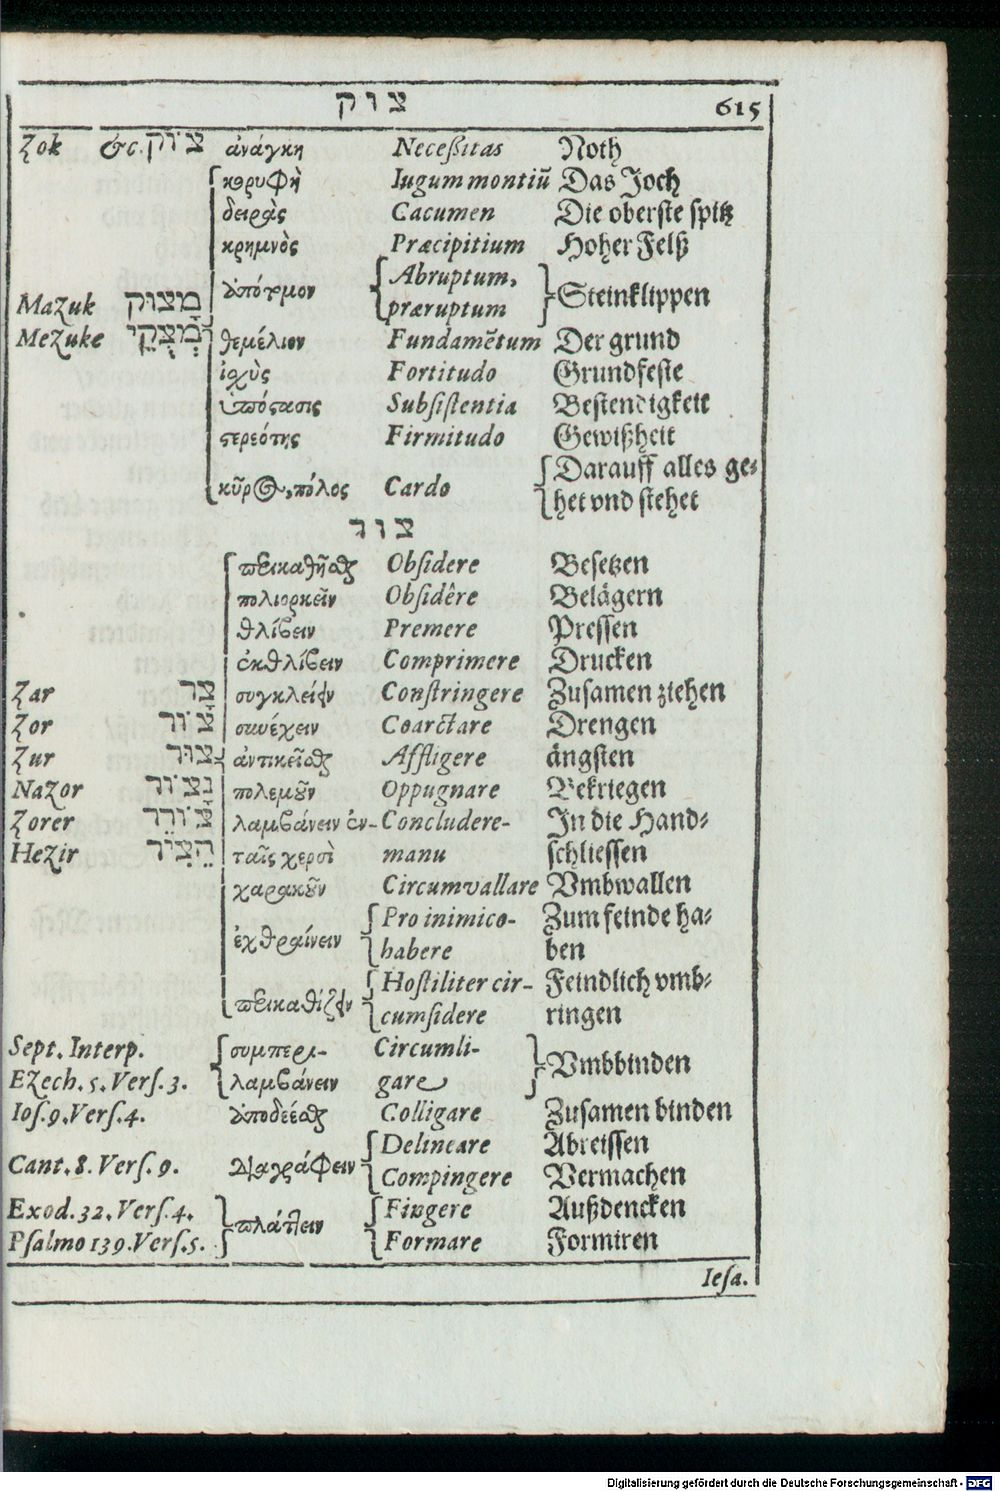 צוק 615
Zok &c. צוֹק ἀνάγκη Neceßitas Noth
κορυφὴ Iugum montiũ Das Joch
δειρὰς Cacumen Die oberste spitz
κρημνὸς Præcipitium Hoher Felß
ἀπότομον Abruptum, præruptum Steinklippen
Mazuk מָצוּק
Mezuke מְצֻקֵי θεμέλιον Fundamẽtum Der grund
ἰσχὺς Fortitudo Grundfeste
ὑπόστασις Subſiſtentia Bestendigkeit
στερεότης Firmitudo Gewißheit
κῦρος, πόλος Cardo Darauff alles ge⸗
het vnd stehet
צור
περικαθῆσθαι Obſidere Besetzen
πολιορκεῖν Obſidêre Belägern
θλίβειν Premere Pressen
ἐκθλίβειν Comprimere Drucken
Zar צָר συγκλείειν Conſtringere Zusamen ziehen
Zor צוֹר συνέχειν Coarctare Drengen
Zur צוּר ἀντικεῖσθαι Affligere ängsten
Nazor נָצוֹר πολεμοῦν Oppugnare Bekriegen
Zorer צוֹרֵר λαμβάνειν ἐν- Concludere- In die Hand⸗
Hezir הֵצִיר ταῖς χερσὶ manu schliessen
χαρακοῦν Circumvallare Vmbwallen
ἐχθραίνειν Pro inimico- Zum feinde ha⸗
habere ben
περικαθίζειν Hoſtiliter cir- Feindlich vmb⸗
cumſidere ringen
Sept. Interp. συμπερι- Circumli-
Ezech. 5. Verſ. 3. λαμβάνειν gare Vmbbinden
Ioſ. 9. Verſ. 4. ἀποδεῖσθαι Colligare Zusamen binden
Delineare Abreissen
Cant. 8. Verſ. 9. διαγράφειν Compingere Vermachen
Exod. 32. Verſ. 4. πλάττειν Fingere Außdencken
Pſalmo 139. Verſ. 5. Formare Formiren
Ieſa.
Digitalisierung gefördert durch die Deutsche Forschungsgemeinschaft - DFG